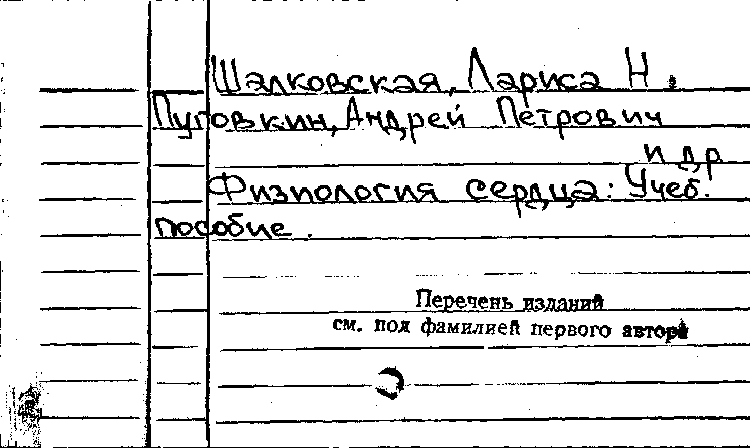 Шалковская, Лариса Н.
Пуговкин, Андрей Петрович
и др
Физиология сердца: Учеб.
пособие.
Перечень изданий
см. под фамилией первого автора